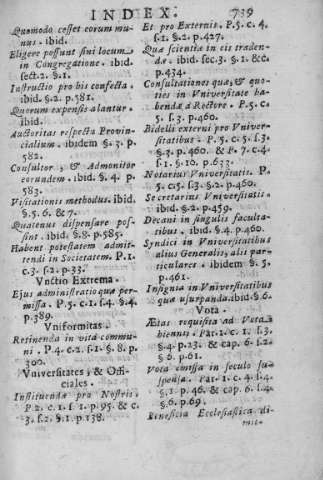 INDEX. 739
Quomodo cesset eorum mu-
nus. ibid.
Eligere possunt sini locum
in Congregatione. ibid.
sect.2. §.1.
Instructio pro his confecta.
ibid. §.2. p.581.
Quorum expensis alantur.
ibid.
Auctoritas respectu Provin-
cialium. ibidem §.3. p.
582.
Consultor, & Admonitor
eorundem. ibid. §.4. p.
583.
Visitationis methodus. ibid.
§.5.6. & 7.
Quatenus dispensare pos-
sint. ibid. §.8. p.585.
Habent potestatem admit-
tendi in Societatem. P.1.
c.3. s.2. p.33.
Vnctio Extrema.
Ejus administratio quæ per-
missa. P.5. c.1. s.4. §.4.
p.389.
Vniformitas.
Retinenda in vita commu-
ni. P.4. c.2. s.1. §.8. p.
300.
Vniversitates, & Offi-
ciales.
Instituenda pro Nostris.
P.2. c.1. s.1. p.95. & c.
3. s.2. §.1. p.138.
Et pro Externis. P.5. c.4.
s.2. §.2. p.427.
Quæ scientiæ in eis traden-
dæ. ibid. sec.3. §.1. &c.
p.434.
Consultationes quæ, & quo-
ties in Vniversitate ha-
bendæ à Rectore. P.5. c.
5. s.3. p.460.
Bidelli externi pro Vniver-
sitatibus. P.5. c.5. s.3.
§.3. p.460. & P.7. c.4.
s.1. §.10. p.633.
Notarius Vniversitatis. P.
5. c.5. s.3. §.2. p.460.
Secretarius Vniversitatis.
ibid. §.2. p.459.
Decani in singulis faculta-
tibus. ibid. §.4. p.460.
Syndici in Vniversitatibus
alius Generalis, alii par-
ticulares. ibidem §.5.
p.461.
Insignia in Vniversitatibus
quæ usurpanda. ibid. §.6.
Vota.
Ætas requisita ad Vota
biennii. Par.1. c.1. s.3.
§.4. p.23. & cap.6. s.2.
§.6. p.61.
Vota emissa in sæculo su-
spensa. Par.1. c.4. s.4.
§.1. p.46. & cap.6. s.4.
§.6. p.69.
Beneficia Ecclesiastica di-
mit-